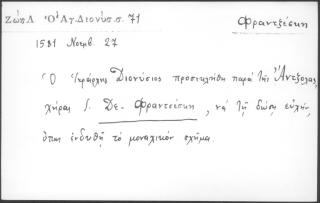 Ζώη Λ Ὁ Ἅγ. Διονύσ. σ. 71
Φραντζέσκη
1581 Νοεμβ. 27
Ὁ Ἱεράρχης Διονύσιος προσεκλήθη παρὰ τῆς Ἀντζολας,
χήρας S. Δε-Φραντσέσκη, νὰ τῇ δώσῃ εὐχὴν,
ὅπως ἐνδυθῇ τὸ μοναχικὸν σχῆμα.